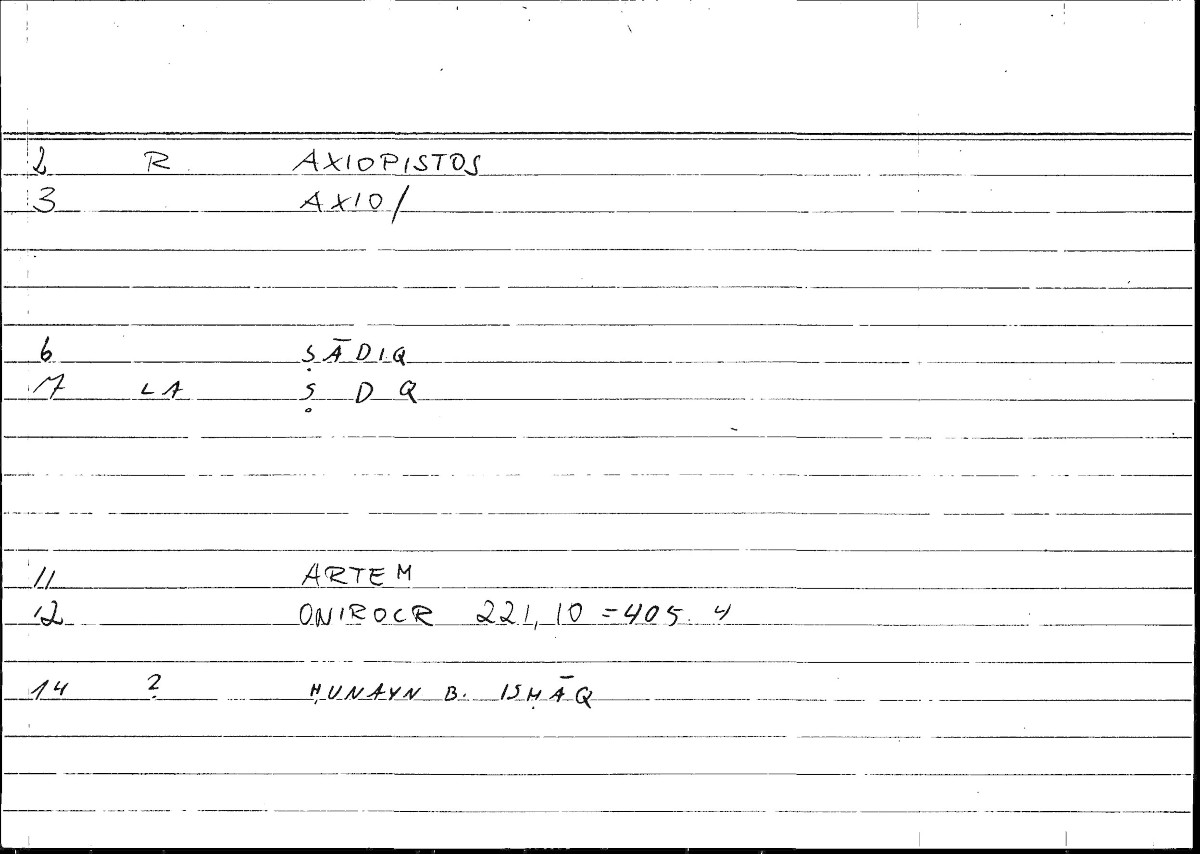 2 R AXIOPISTOS
3 AXIO/
6 ṢĀDIQ
7 LA Ṣ D Q
11 ARTEM
12 ONIROCR 221,10 =405.4
14 ? ḤUNAYN B. ISḤĀQ